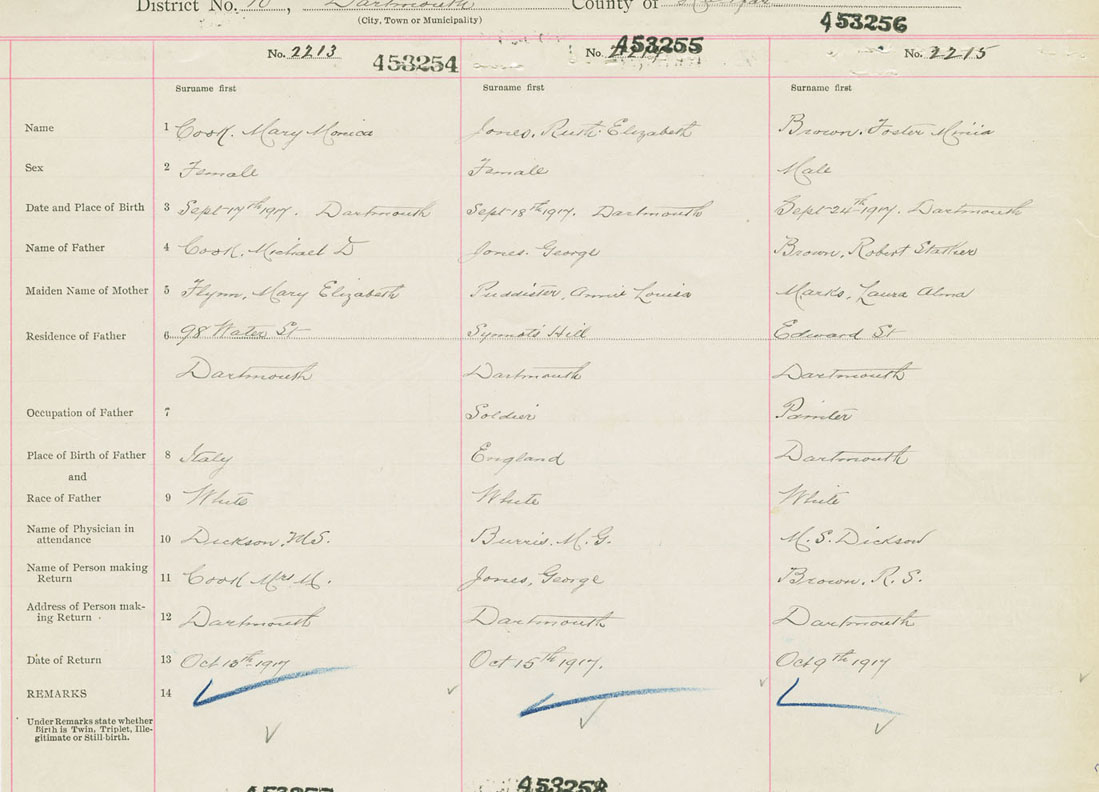 District No. 10, Dartmouth County of Halifax
(City, Town or Municipality)
453256
No. 2213 453254 No. 453255 No. 2215
Surname first Surname first Surname first
Name 1 Cook, Mary Monica Jones, Ruth Elizabeth Brown, Foster
Sex 2 Female Female Male
Date and Place of Birth 3 Sept 17th 1917. Dartmouth Sept 18th 1917. Dartmouth Sept 24th 1917. Dartmouth
Name of Father 4 Cook, Michael D Jones. George Brown, Robert
Maiden Name of Mother 5 Flynn, Mary Elizabeth Puddister, Annie Louisa Marks, Laura Alma
Residence of Father 6 98 Water St Synnots Hill Edward St
Dartmouth Dartmouth Dartmouth
Occupation of Father 7 Soldier Painter
Place of Birth of Father 8 Italy England Dartmouth
and
Race of Father 9 White White White
Name of Physician in
attendance 10 Dickson, M.S. Burris. M. G. M. S. Dickson
Name of Person making
Return 11 Cook Mrs M. Jones, George Brown, R. S.
Address of Person mak-
ing Return 12 Dartmouth Dartmouth Dartmouth
Date of Return 13 Oct 1917 Oct 15th 1917. Oct 9th 1917
REMARKS 14
Under Remarks state whether
Birth is Twin, Triplet, Ille-
gitimate or Still-birth.
453258